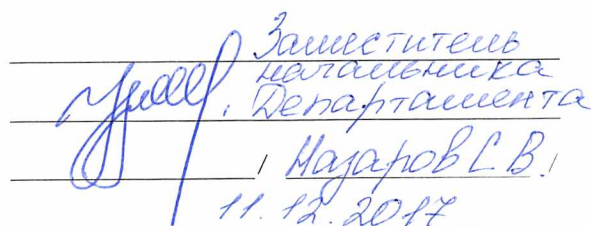 Заместитель
начальника
Департамента
/ Назаров С.В. /
11.12.2017